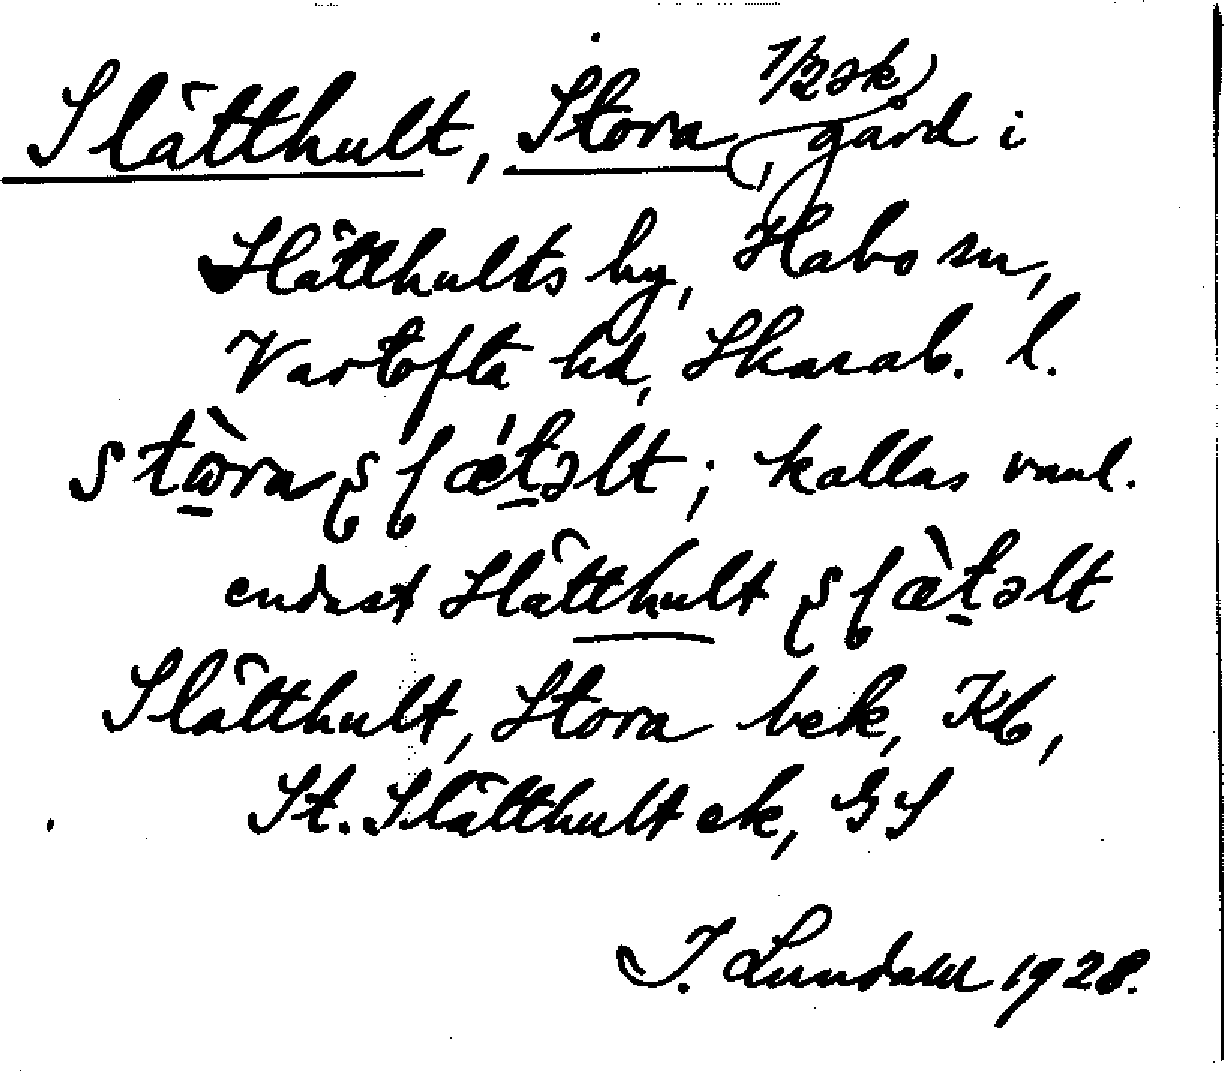 Slätthult, Stora, 1/2 sk gård i
Slätthults by, Habo sn,
Vartofta hd, Skarab. l.
; kallas vanl.
endast Slätthult
Slätthult, Stora bek, Kb,
St. Slätthult ek, GS
I. Lundahl 1928.